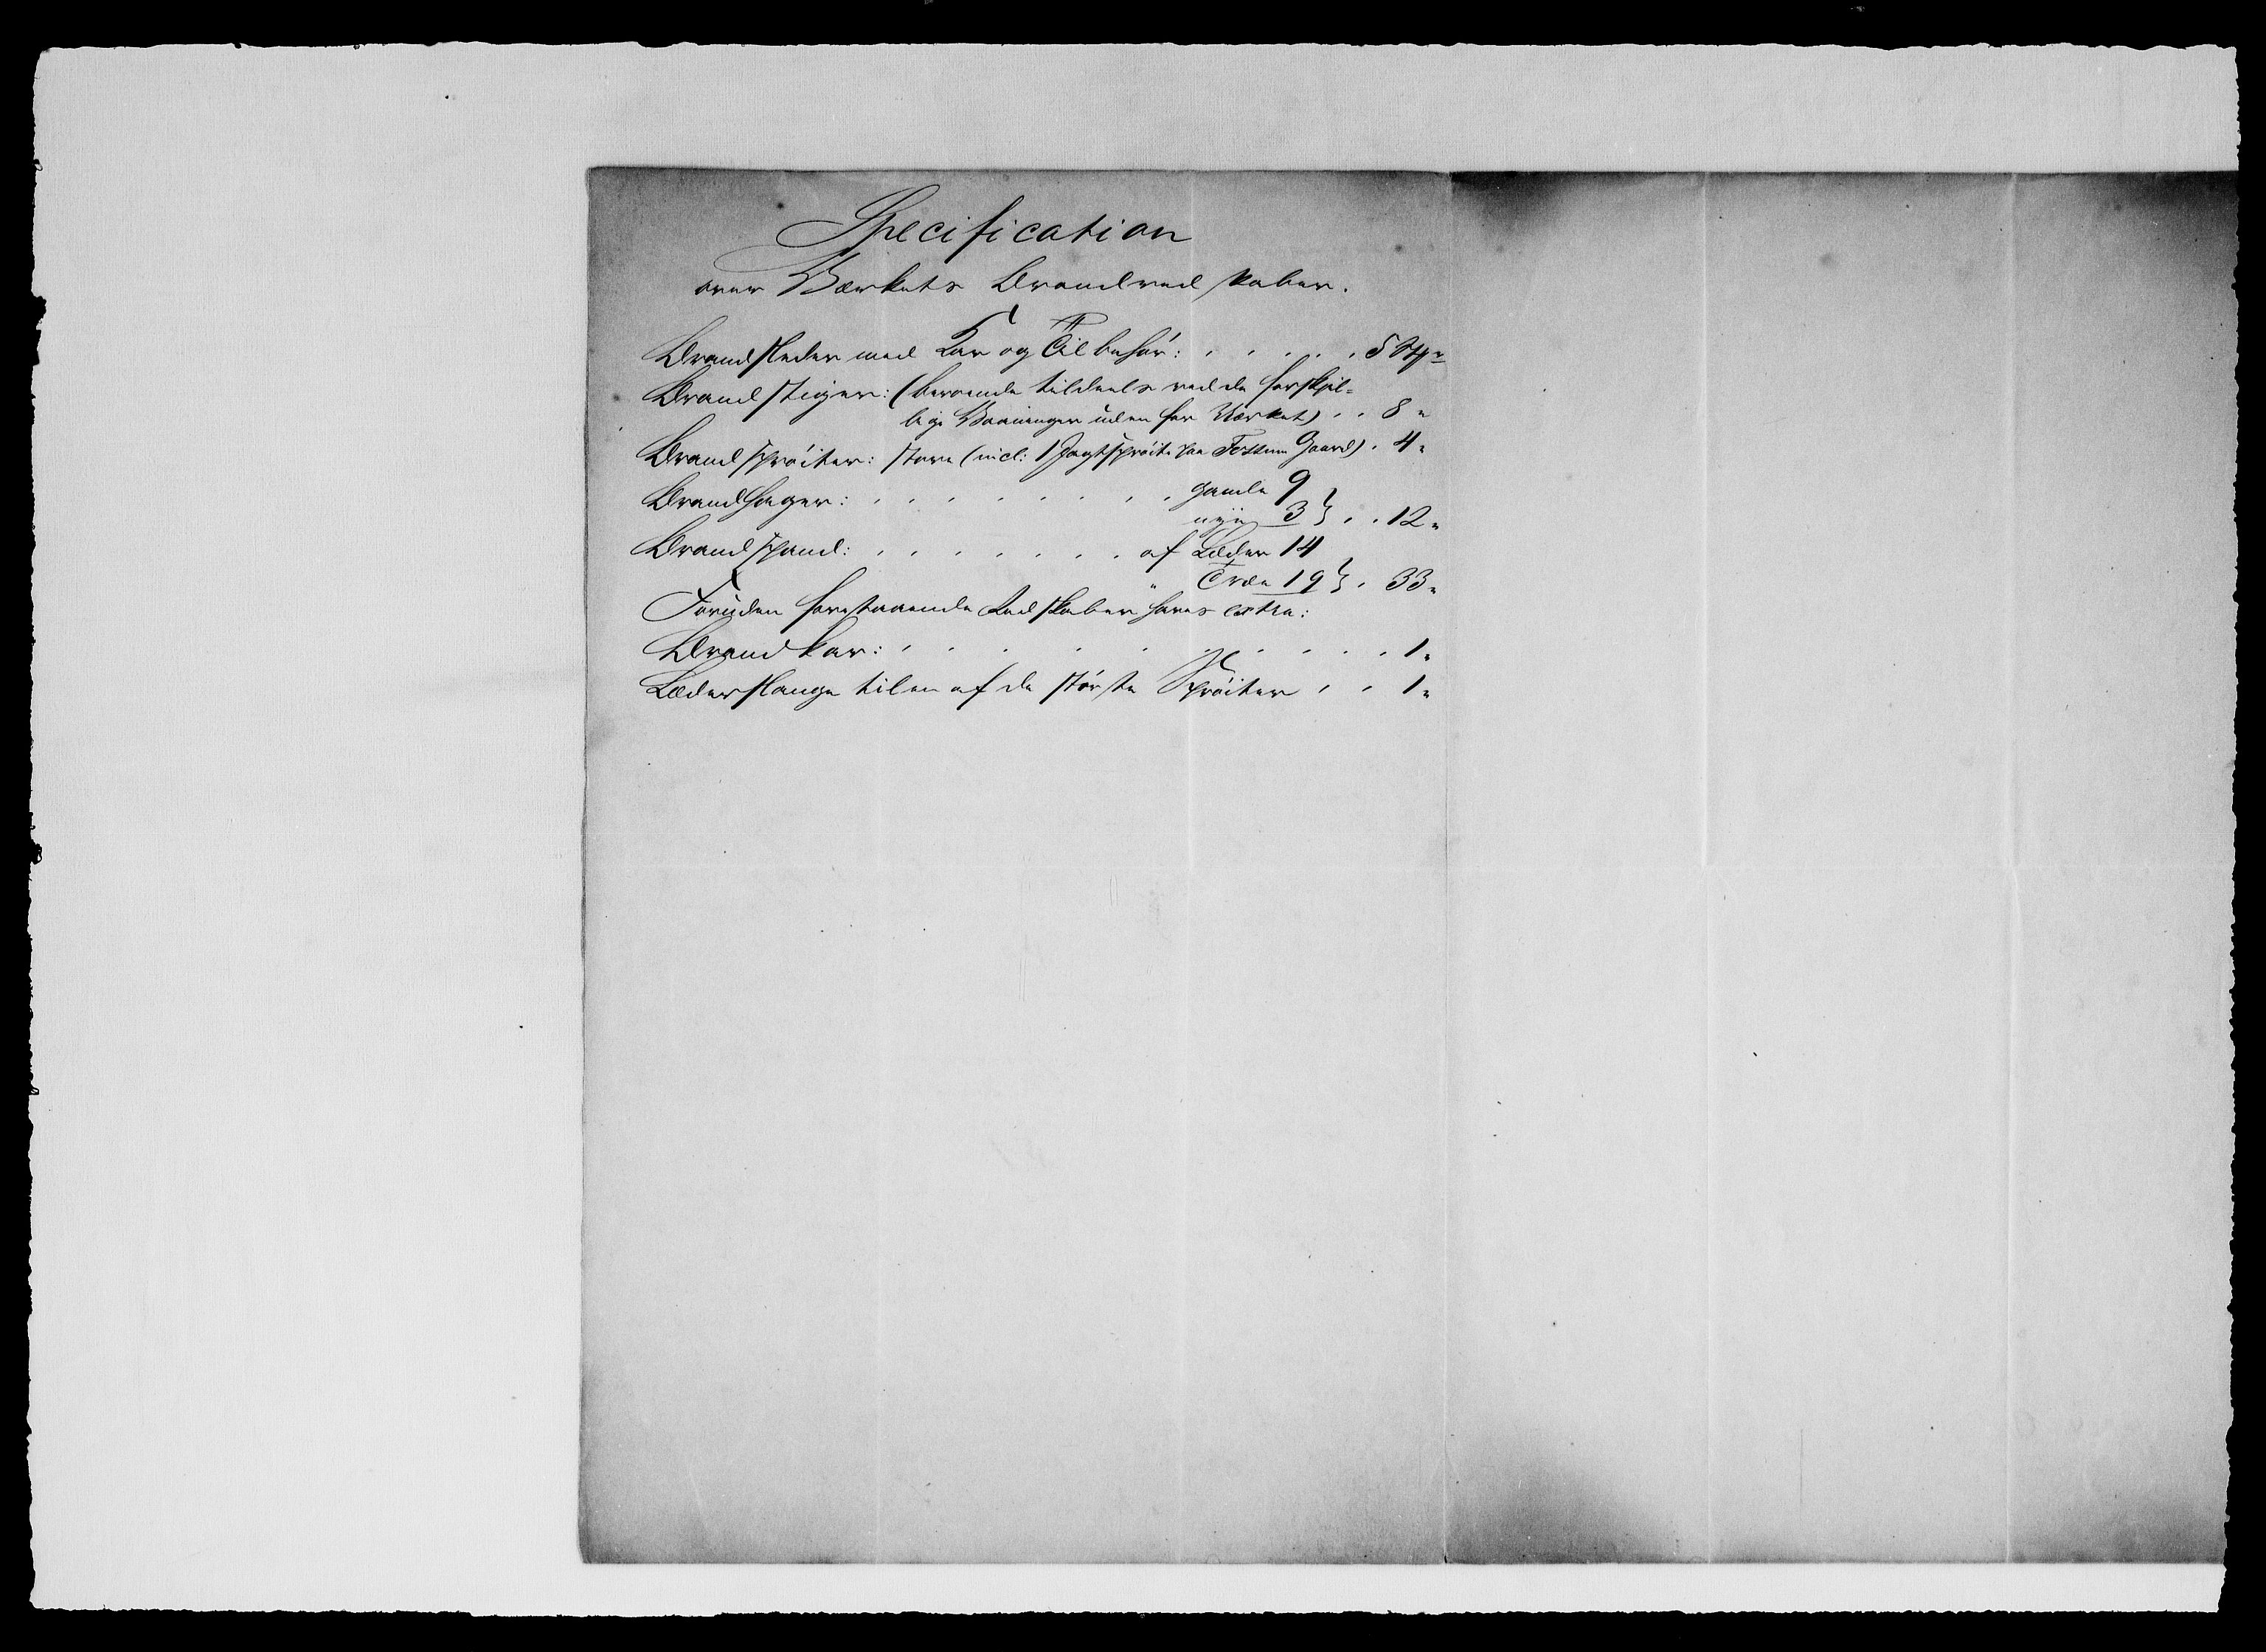 Specification
over Værkets Brandredskaber.
Brandsleder med Kar og Tilbehør: . . . . . 5 St
Brandstiger: (beroende tildeels ved de forskjel=
lige Vaaninger uden for Værket) . . 8 "
Brandsprøiter: store (incl: 1 Jagtsprøite paa Fossum Gaard) . 4 "
Brandhager: . . . . . . . . gamle 9
nye 3 } . . 12 "
Brandspand: . . . . . . . af Læder 14
" Træe 19 } . 33 "
Foruden forestaaende Redskaber haves extra:
Brandkar: . . . . . . . . . 1 "
Læderslange til en af de største Sprøiter . . 1 "